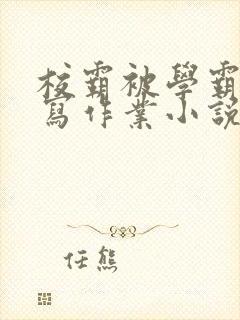 校霸被學霸
寫作業小說
任熊